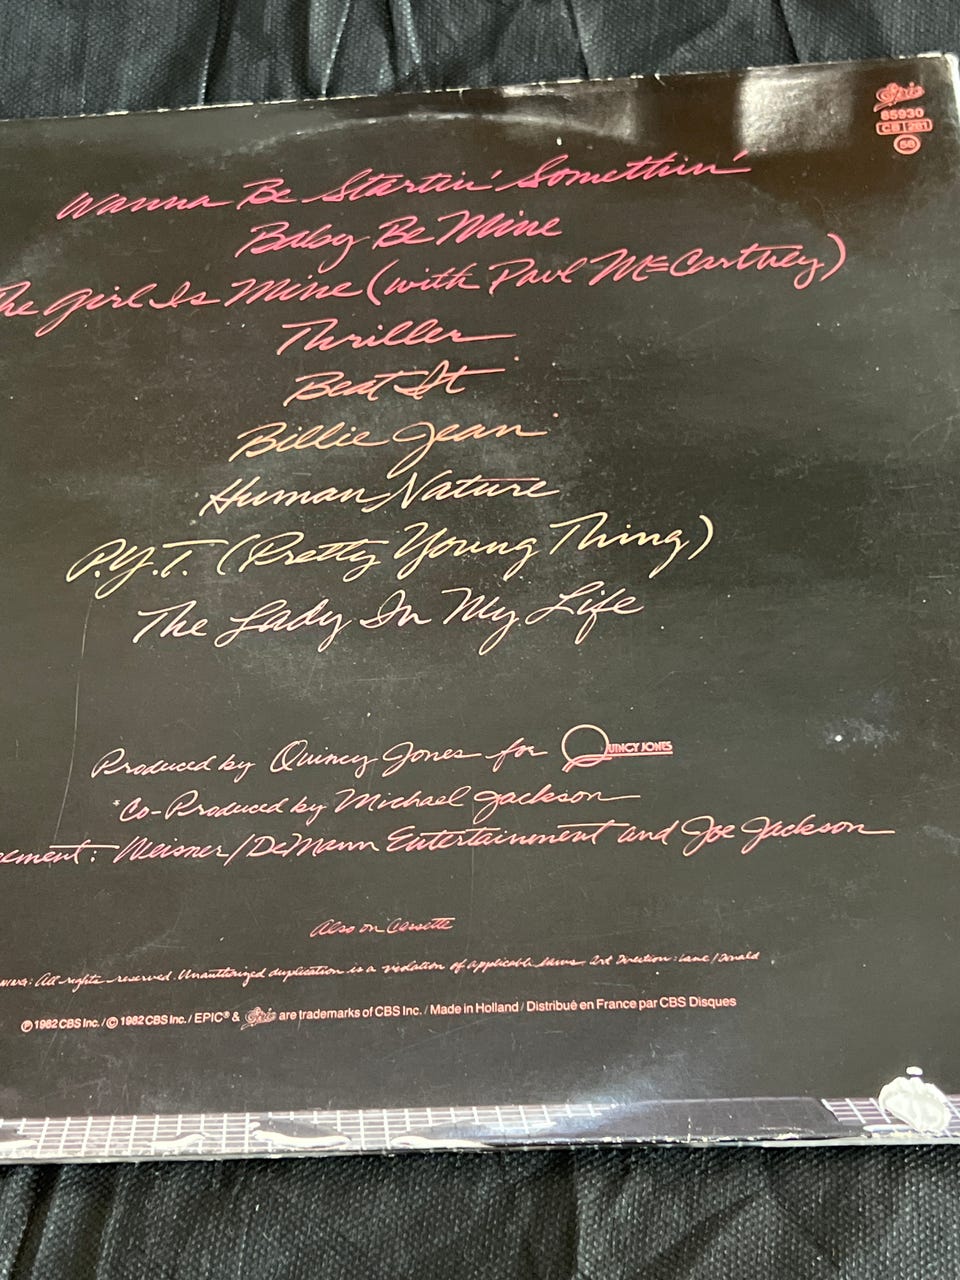 Epic
85930
CB 281
58
Wanna Be Startin' Somethin'
Baby Be Mine
The Girl Is Mine (with Paul McCartney)
Thriller
Beat It
Billie Jean
Human Nature
P.Y.T. (Pretty Young Thing)
The Lady In My Life
Produced by Quincy Jones for QUINCY JONES
*Co-Produced by Michael Jackson
ement: Weisner/DeMann Entertainment and Joe Jackson
Also on Cassette
All rights reserved. Unauthorized duplication is a violation of applicable laws. Art Direction: Lane/Donald
℗ 1982 CBS Inc. / © 1982 CBS Inc. / EPIC® & Epic are trademarks of CBS Inc. / Made in Holland / Distribué en France par CBS Disques